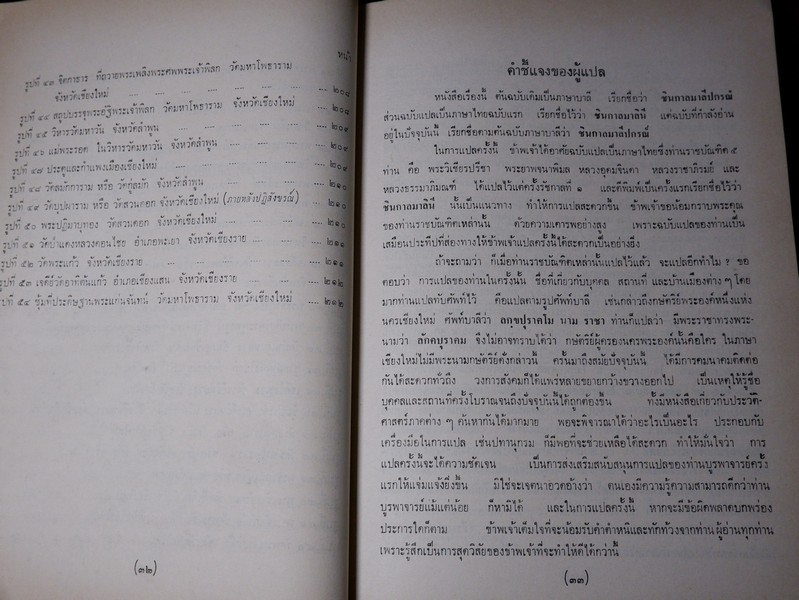 หน้า
รูปที่ ๔๓ จิตกาธาร ที่ถวายพระเพลิงพระศพพระเจ้าพิลก วัดมหาโพธาราม
จังหวัดเชียงใหม่ .... .... .... .... .... .... ๒๐๘
รูปที่ ๔๔ สถูปบรรจุพระอัฐิพระเจ้าพิลก วัดมหาโพธาราม จังหวัดเชียงใหม่ .... ๒๐๘
รูปที่ ๔๕ วิหารวัดมหาวัน จังหวัดลำพูน .... .... .... .... ๒๐๙
รูปที่ ๔๖ แม่พระรอด ในวิหารวัดมหาวัน จังหวัดลำพูน .... .... ๒๐๙
รูปที่ ๔๗ ประตูและกำแพงเมืองเชียงใหม่ .... .... .... .... ๒๐๙
รูปที่ ๔๘ วัดสมักการาม หรือ วัดกู่สมัก จังหวัดลำพูน .... .... .... ๒๑๐
รูปที่ ๔๙ วัดบุปผาราม หรือ วัดสวนดอก จังหวัดเชียงใหม่ (ภายหลังปฏิสังขรณ์) .... ๒๑๐
รูปที่ ๕๐ พระปฏิมาบุทอง วัดสวนดอก จังหวัดเชียงใหม่ .... .... ๒๑๐
รูปที่ ๕๑ วัดป่าแดงหลวงดอนไชย อำเภอพะเยา จังหวัดเชียงราย .... ๒๑๑
รูปที่ ๕๒ วัดพระแก้ว จังหวัดเชียงราย .... .... .... .... ๒๑๑
รูปที่ ๕๓ เจดีย์วัดอาทิต้นแก้ว อำเภอเชียงแสน จังหวัดเชียงราย .... .... ๒๑๒
รูปที่ ๕๔ ซุ้มที่ประดิษฐานพระแก่นจันทน์ วัดมหาโพธาราม จังหวัดเชียงใหม่ .... ๒๑๒
(๓๒)
คำชี้แจงของผู้แปล
หนังสือเรื่องนี้ ต้นฉบับเดิมเป็นภาษาบาลี เรียกชื่อว่า ชินกาลมาลีปกรณ์
ส่วนฉบับแปลเป็นภาษาไทยฉบับแรก เรียกชื่อไว้ว่า ชินกาลมาลินี แต่ฉบับที่กำลังอ่าน
อยู่ในปัจจุบันนี้ เรียกชื่อตามต้นฉบับบาลีว่า ชินกาลมาลีปกรณ์
ในการแปลครั้งนี้ ข้าพเจ้าได้อาศัยฉบับแปลเป็นภาษาไทยซึ่งท่านราชบัณฑิต ๕
ท่าน คือ พระวิเชียรปรีชา พระยาพจนาพิมล หลวงอุดมจินดา หลวงราชาภิรมย์ และ
หลวงธรรมาภิมณฑ์ ได้แปลไว้แต่ครั้งรัชกาลที่ ๑ และตีพิมพ์เป็นครั้งแรกเรียกชื่อไว้ว่า
ชินกาลมาลินี นั้นเป็นแนวทาง ทำให้การแปลสะดวกขึ้น ข้าพเจ้าขอน้อมกราบพระคุณ
ของท่านราชบัณฑิตเหล่านั้น ด้วยความเคารพอย่างสูง เพราะฉบับแปลของท่านเป็น
เสมือนประทีปที่ส่องทางให้ข้าพเจ้าแปลครั้งนี้ได้สะดวกเป็นอย่างยิ่ง
ถ้าจะถามว่า ก็เมื่อท่านราชบัณฑิตเหล่านั้นแปลไว้แล้ว จะแปลอีกทำไม ? ขอ
ตอบว่า การแปลของท่านในครั้งนั้น ชื่อที่เกี่ยวกับบุคคล สถานที่ และบ้านเมืองต่าง ๆ โดย
มากท่านแปลทับศัพท์ไว้ คือแปลตามรูปศัพท์บาลี เช่นกล่าวถึงกษัตริย์พระองค์หนึ่งแห่ง
นครเชียงใหม่ ศัพท์บาลีว่า ลกฺขปุราคโม นาม ราชา ท่านก็แปลว่า มีพระราชาทรงพระ-
นามว่า ลักคบุราคม จึงไม่อาจทราบได้ว่า กษัตริย์ผู้ครองนครพระองค์นั้นคือใคร ในภาษา
เชียงใหม่ไม่มีพระนามกษัตริย์ดั่งกล่าวนี้ ครั้นมาถึงสมัยปัจจุบันนี้ ได้มีการคมนาคมติดต่อ
กันได้สะดวกทั่วถึง วงการสังคมก็ได้แพร่หลายขยายกว้างขวางออกไป เป็นเหตุให้รู้ชื่อ
บุคคลและสถานที่ครั้งโบราณจนถึงปัจจุบันนี้ได้ถูกต้องขึ้น ทั้งมีหนังสือเกี่ยวกับประวัติ-
ศาสตร์ภาคต่าง ๆ ค้นหากันได้มากมาย พอจะพิจารณาได้ว่าอะไรเป็นอะไร ประกอบกับ
เครื่องมือในการแปล เช่นปทานุกรม ก็มีพอที่จะช่วยเหลือได้สะดวก ทำให้มั่นใจว่า การ
แปลครั้งนี้จะได้ความชัดเจน เป็นการส่งเสริมสนับสนุนการแปลของท่านบูรพาจารย์ครั้ง
แรกให้แจ่มแจ้งยิ่งขึ้น มิใช่จะเจตนาอวดอ้างว่า ตนเองมีความรู้ความสามารถดีกว่าท่าน
บูรพาจารย์แม้แต่น้อย ก็หามิได้ และในการแปลครั้งนี้ หากจะมีข้อผิดพลาดบกพร่อง
ประการใดก็ตาม ข้าพเจ้าเต็มใจที่จะน้อมรับคำตำหนิและทักท้วงจากท่านผู้อ่านทุกท่าน
เพราะรู้สึกเป็นการสุดวิสัยของข้าพเจ้าที่จะทำให้ดีได้กว่านี้
(๓๓)